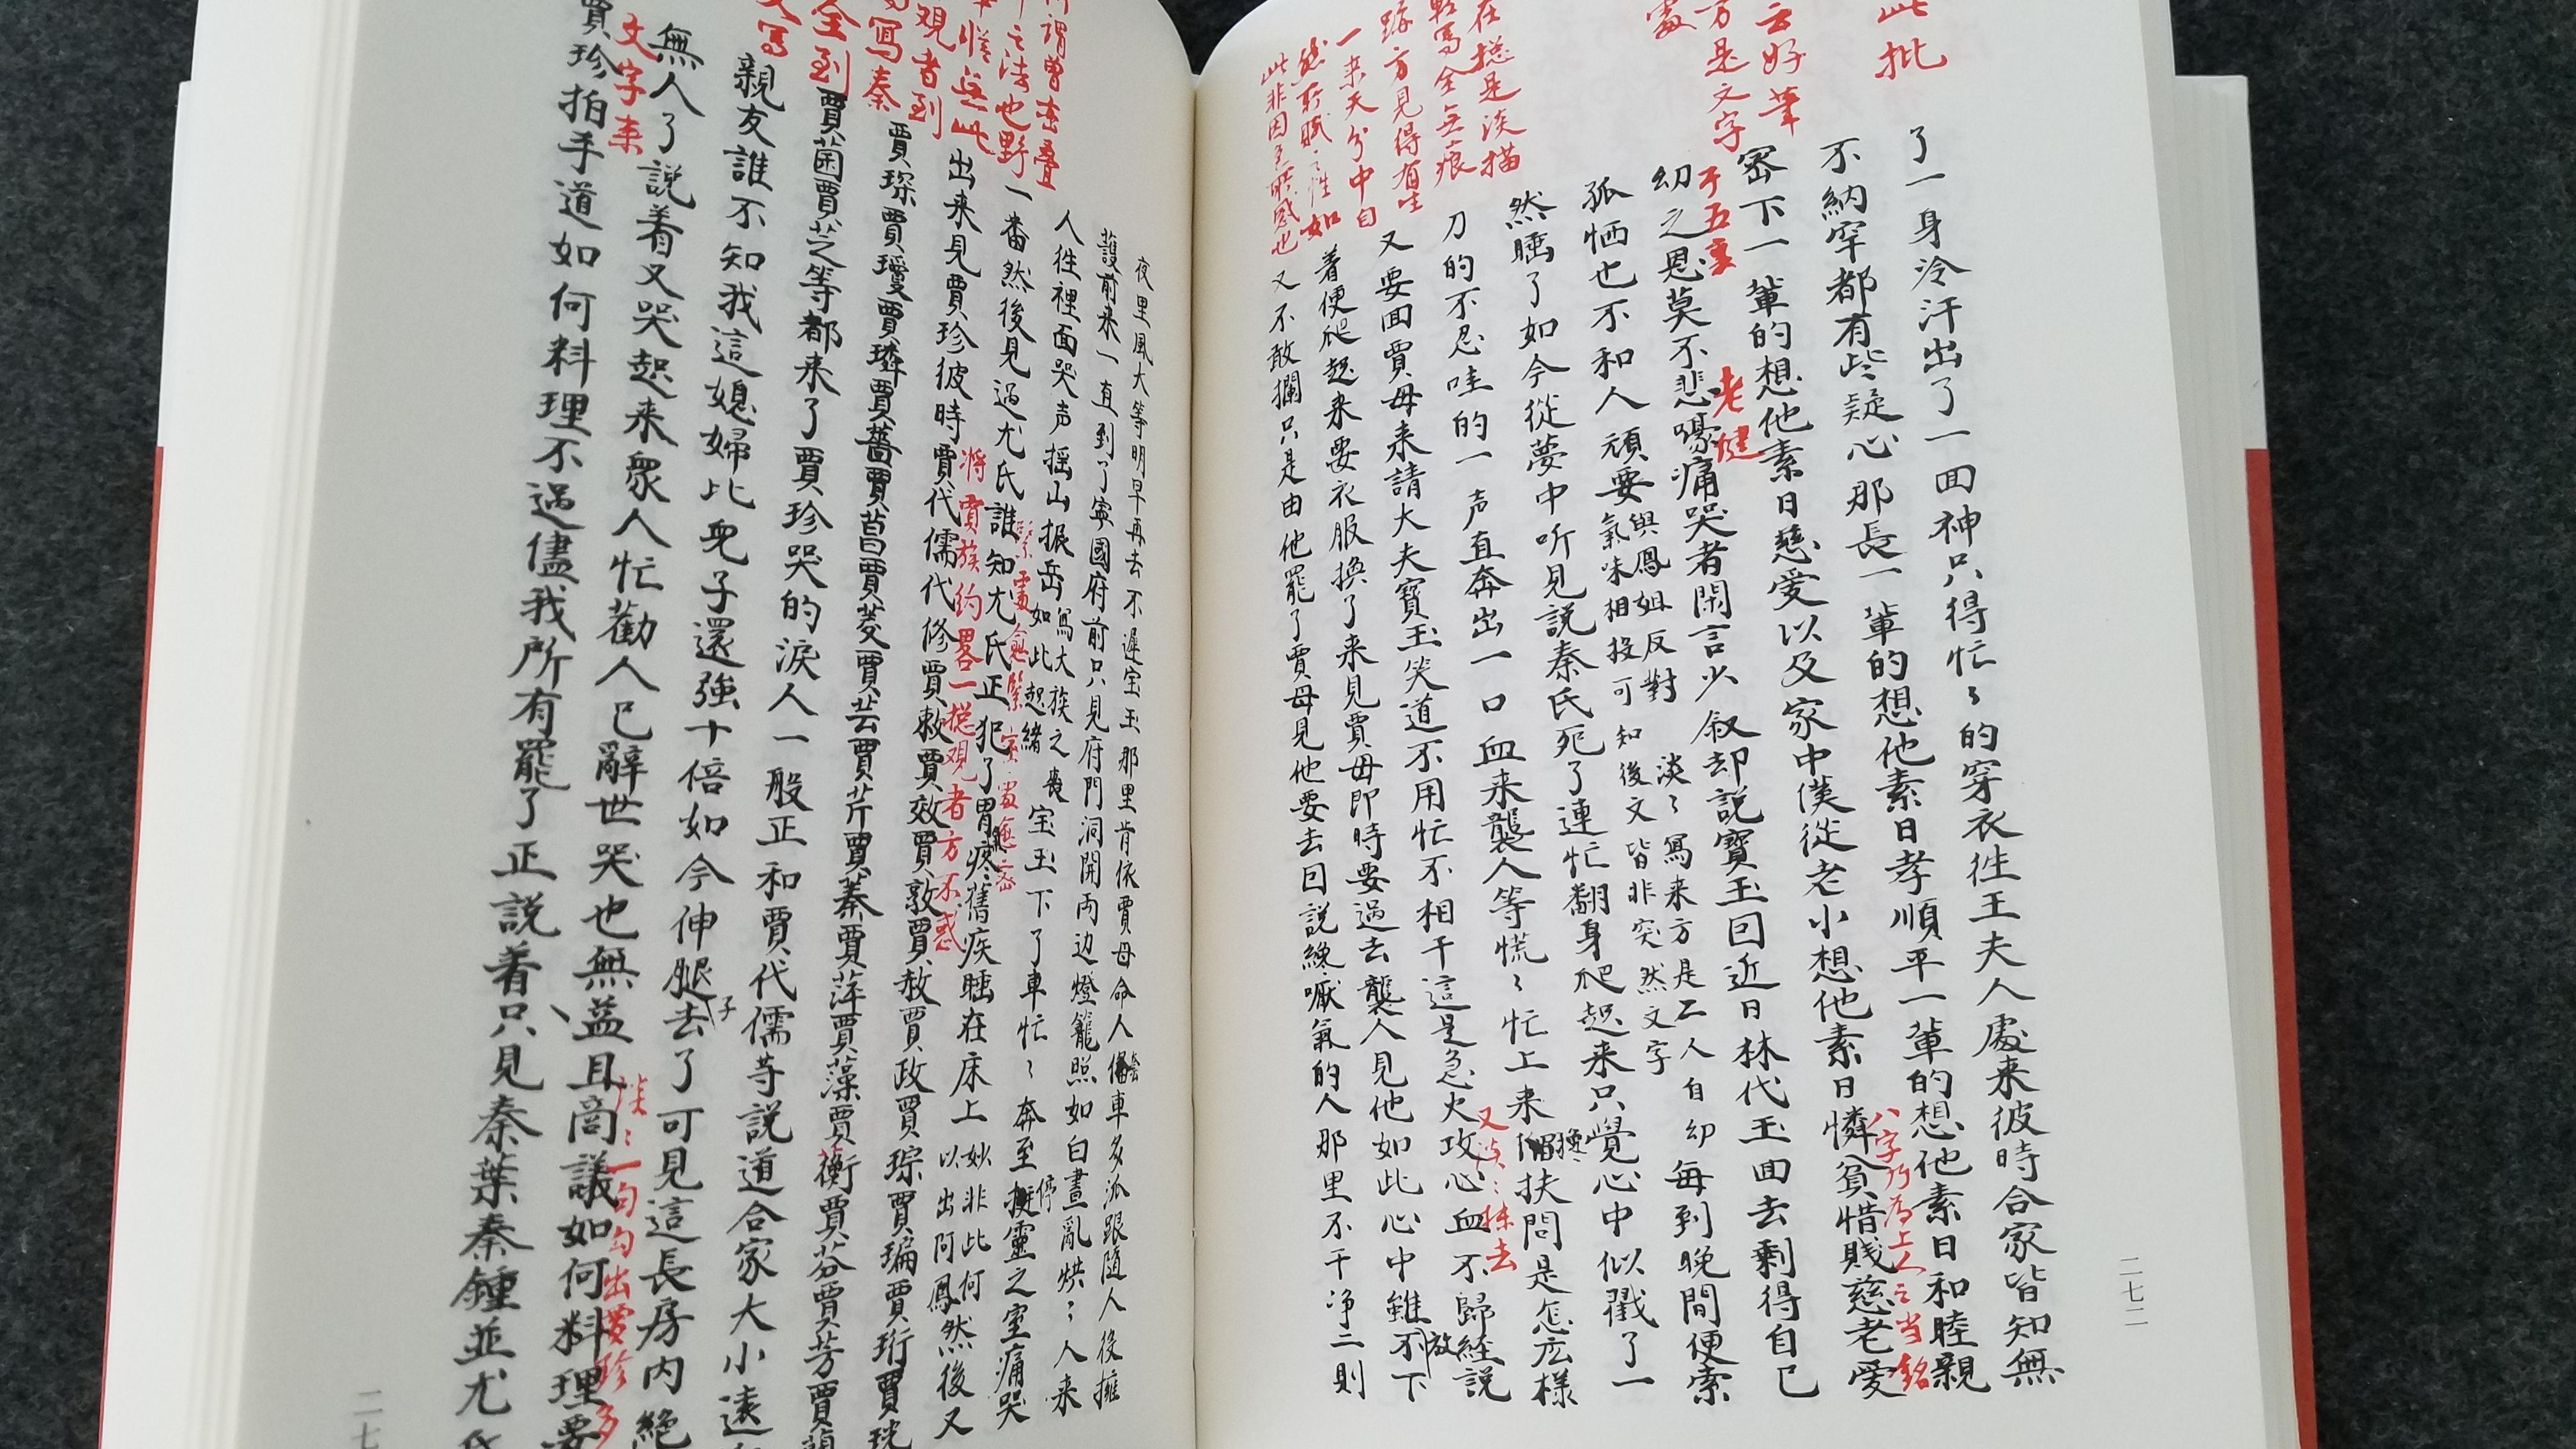 此批
云好筆
方是文字
處
在總是淡描
輕寫全無痕
跡方見得有生
一来天分中自
然所賦之性如
此非因色所感也
了一身冷汗出了一回神只得忙〻的穿衣徃王夫人處来彼時合家皆知無
不納罕都有些疑心那長一輩的想他素日孝順平一輩的想他素日和睦親
八字乃為上人之当銘
密下一輩的想他素日慈愛以及家中僕從老小想他素日憐貧惜賤慈老愛
幼之恩莫不悲嚎痛哭者閑言少叙却説寶玉回近日林代玉回去剩得自己
老健
孤恓也不和人頑耍
與鳳姐反對
淡〻寫来方是二人自幼
氣味相投可知後文皆非突然文字
每到晚間便索
然睡了如今從夢中听見説秦氏死了連忙翻身爬起来只覺心中似戳了一
刀的不忍哇的一声直奔出一口血来襲人等慌〻忙上来扶問是怎庅樣
攙
又要回賈母来請大夫寳玉笑道不用忙不相干這是急火攻心血不歸經説
又淡〻抹去
着便爬起来要衣服換了来見賈母即時要過去襲人見他如此心中雖不下
放
又不敢攔只是由他罷了賈母見他要去回説纔嚥氣的人那里不干净二則
二七二
夜里風大等明早再去不遲宝玉那里肯依賈母命人俻車多派跟随人役擁
護前来一直到了寧國府前只見府門洞開両边燈籠照如白晝亂烘〻人来
人徃裡面哭声揺山振岳
寫大族之喪
如此起緒
宝玉下了車忙〻奔至停靈之室痛哭
一番然後見過尤氏誰知尤氏正犯了胃疼舊疾睡在床上
妙非此何
以出阿鳳
然後又
出来見賈珍彼時賈代儒代修賈敕賈效賈敦賈赦賈政賈琮賈㻞賈珩賈珖
將賈族約畧一総観者方不惑
賈琛賈瓊賈璘賈薔賈菖賈菱賈芸賈芹賈蓁賈萍賈藻賈蘅賈芬賈芳賈
賈菌賈芝等都来了賈珍哭的淚人一般正和賈代儒等説道合家大小遠
親友誰不知我這媳婦比児子還強十倍如今伸腿去了可見這長房内絕
子
無人了説着又哭起来衆人忙勸人已辭世哭也無益且商議如何料理要
淡〻一句勾出賈珍多
文字来
賈珍拍手道如何料理不過儘我所有罷了正説着只見秦葉秦鍾並尤
所謂曾壺疊
観者到
寫秦
全到
文寫
二七